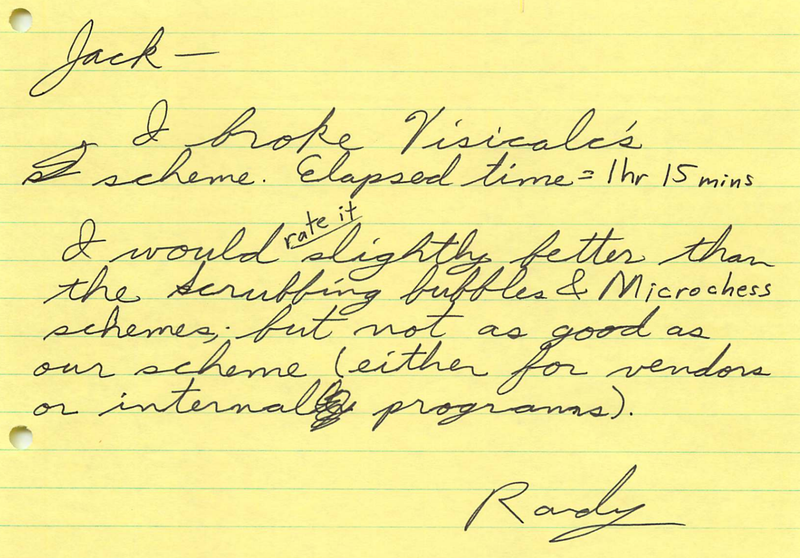 Jack —
I broke Visicalc's
scheme. Elapsed time = 1hr 15 mins
I would rate it slightly better than
the Scrubbing bubbles & Microchess
schemes; but not as good as
our scheme (either for vendors
or internal programs).
Randy